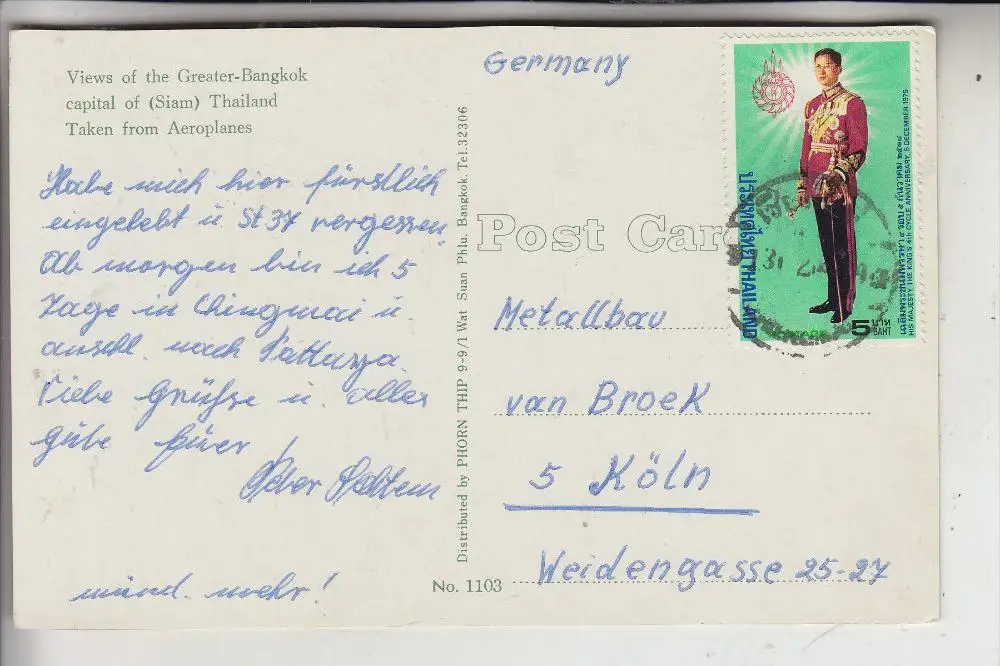 Views of the Greater-Bangkok
capital of (Siam) Thailand
Taken from Aeroplanes
Habe mich hier fürstlich
eingelebt u St 37 vergessen.
Ab morgen bin ich 5
Tage in Chingmai u.
anschl. nach Pattaya.
Liebe Grüße u. alles
gute Euer
Peter
münd. mehr!
Distributed by PHORN THIP 9-9/1 Wat Suan Phlu, Bangkok. Tel.32306
No. 1103
Germany
Post Card
Metallbau
van Broek
5 Köln
Weidengasse 25-27
ประเทศไทย THAILAND
HIS MAJESTY THE KING'S 4th CYCLE ANNIVERSARY, 5 DECEMBER 1975
5 BAHT